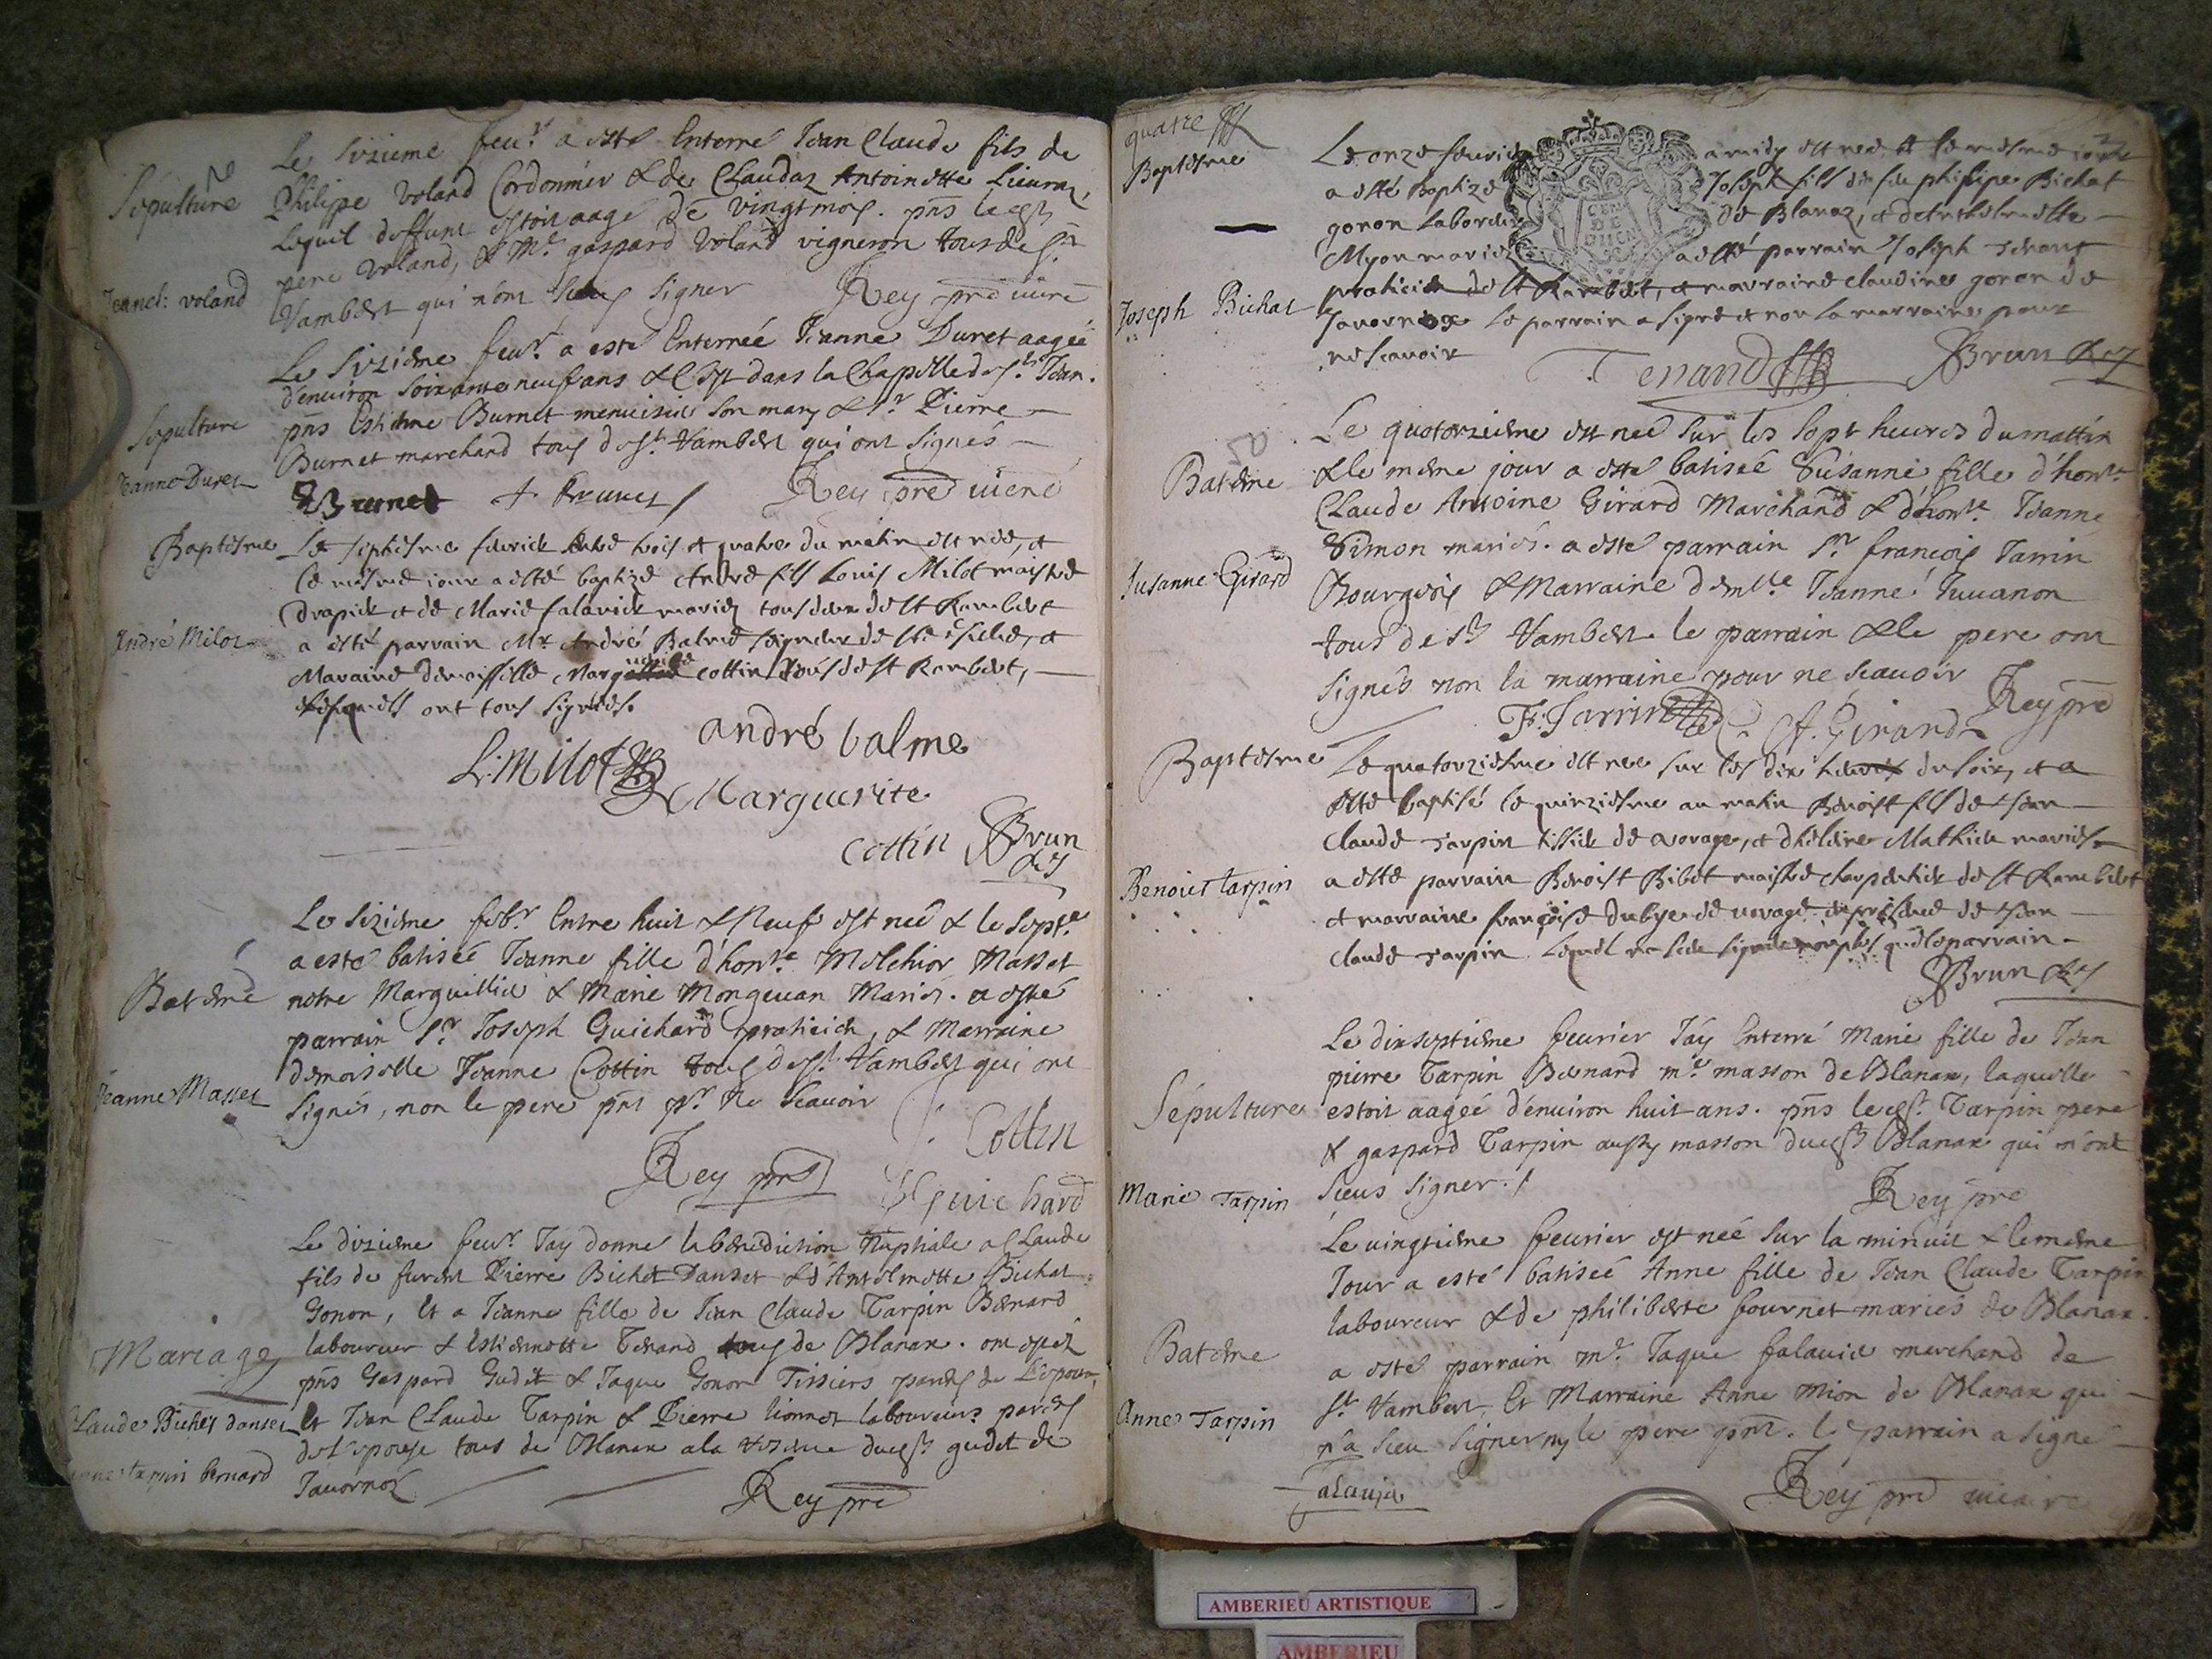 Sepulture
Jeancl: voland
Le sixieme feur. a esté Enterré Jean Claude fils de
Philipe Voland Cordonnier & de Claudaz Antoinette Lieuraz,
Lequel deffunt estoit aagé de vingt mois. pñs
pere voland, & Mr. gaspard Voland vigneron tous de St.
Rambert qui n'ont sceus signer Rey pre vicaire
Sepulture
Jeanne Duret
Le sixième feur. a esté Enterreé Jeanne Duret aageé
d'enuiron soixante neuf ans & dans la Chapelle de St. Jean.
pñs Estienne Burnet menuisier son mary & Sr Pierre
Burnet marchand tous de St. Rambert qui ont signés
Burnet Rey pre
Baptesme
André Milot
Le septiesme feurier entre trois et quatre du matin est née, et
le mesme iour a esté baptizé André fils Louis Milot maistre
drapier et de Marie falauier mariez tous deux de St Rambert
a esté parrain Mr. André Balme seigneur de et
Maraine demoiselle Marguerite cottin tous de St Rambert,
lesquells ont tous signés.
L. Milot andré balme
Marguerite
cottin Brun
Batême
Jeanne Masset
Le sizième febr. Entre huit & Neuf est neé & le sept.e
a esté batisée Jeanne fille d'hon.te Melchior Masset
notre Marguillier & Marie Mongeuan Mariés. a esté
parrain Sr. Joseph Guichard praticien, & Marraine
demoiselle Jeanne Cottin tous de St. Rambert qui ont
signés, non le pere pñt pr. ne scauoir
J. Cottin
Rey pre
Guichard
Mariage
Claude Bichet danset
Jeanne tarpin bernard
Le dixième feur. J'ay donné la benediction Nuptiale a Claude
fils de furent Pierre Bichet Danset & d'Antelmette Bichat
Gonon, et a Jeanne fille de Jean Claude Tarpin Bernard
laboureur & Estiennette Tenand tous de Blanax. ont estez
pñs Gaspard Gudet & Jaque Gonon Tissiers parens de L'epoux,
et Jean Claude Tarpin & Pierre lionnet laboureurs parens
de L'epouse tous de Blanax a la reserue gudet de
Jauornoz
Rey pre
quatre
Baptesme
Joseph Bichat
Le onze feurier a midy est née et le mesme iour
a esté baptizé Joseph fils de feu philipe Bichat
gonon laboureur de Blanaz, et
Myon mariez a esté parrain Joseph Tenand
praticien de St Rambert, et marraine claudine gonon de
Jauornoz le parrain a signé et non la marraine pour
ne scauoir
Tenand Brun
50
Batême
Susanne Girard
Le quatorzième est neé sur les sept heures du mattin
& le même jour a esté batiseé Susanne fille d'hon.te
Claude Antoine Girard Marchand & d'hon.te Jeanne
Simon mariés. a esté parrain Sr. françois Jarrin
Bourgeois & Marraine dem.lle Jeanne Juuanon
tous de St Rambert le parrain & le pere ont
signés non la marraine pour ne scauoir
F. Jarrin C. A. Girard Rey pre
Baptesme
Benoist tarpin
Le quatorziesme est nee sur les dix heures du soir, et a
esté baptisé le quinziesme au matin Benoist fils de Jean
Claude Tarpin tissier de et d'helaine Mathieu mariés
a esté parrain Benoist Bibet maistre charpentier de St Rambert
et marraine françoise de
claude Tarpin. lequel
Brun
Sépulture
Marie Tarpin
Le dixseptième feurier J'ay Enterré Marie fille de Jean
pierre Tarpin Bernard me. masson de Blanax, laquelle
estoit aageé d'enuiron huit ans. pñs Tarpin pere
& gaspard Tarpin aussy masson Blanax qui n'ont
sceus signer.
Rey pre
Batême
Anne Tarpin
Le vingtième feurier est née sur la minuit & le même
Jour a esté batiseé Anne fille de Jean Claude Tarpin
laboureur & de philiberte fournet mariés de Blanax.
a esté parrain me. Jaque falauier marchand de
St. Rambert, et Marraine Anne Mion de Blanax qui
n'a sceu signer ny le pere pñt. le parrain a signé
falauier
Rey pre vicaire
AMBERIEU ARTISTIQUE
AMBERIEU